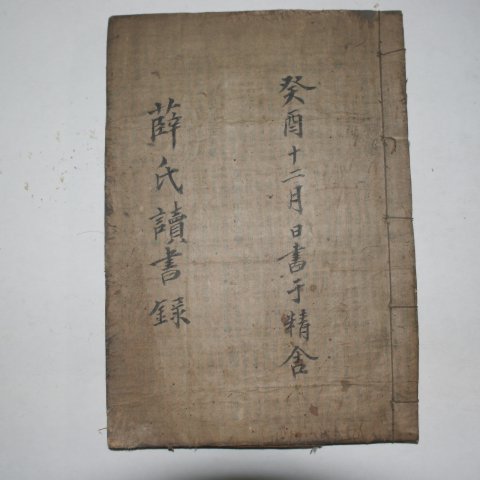 癸酉十二月日書于精舍
薛氏讀書録